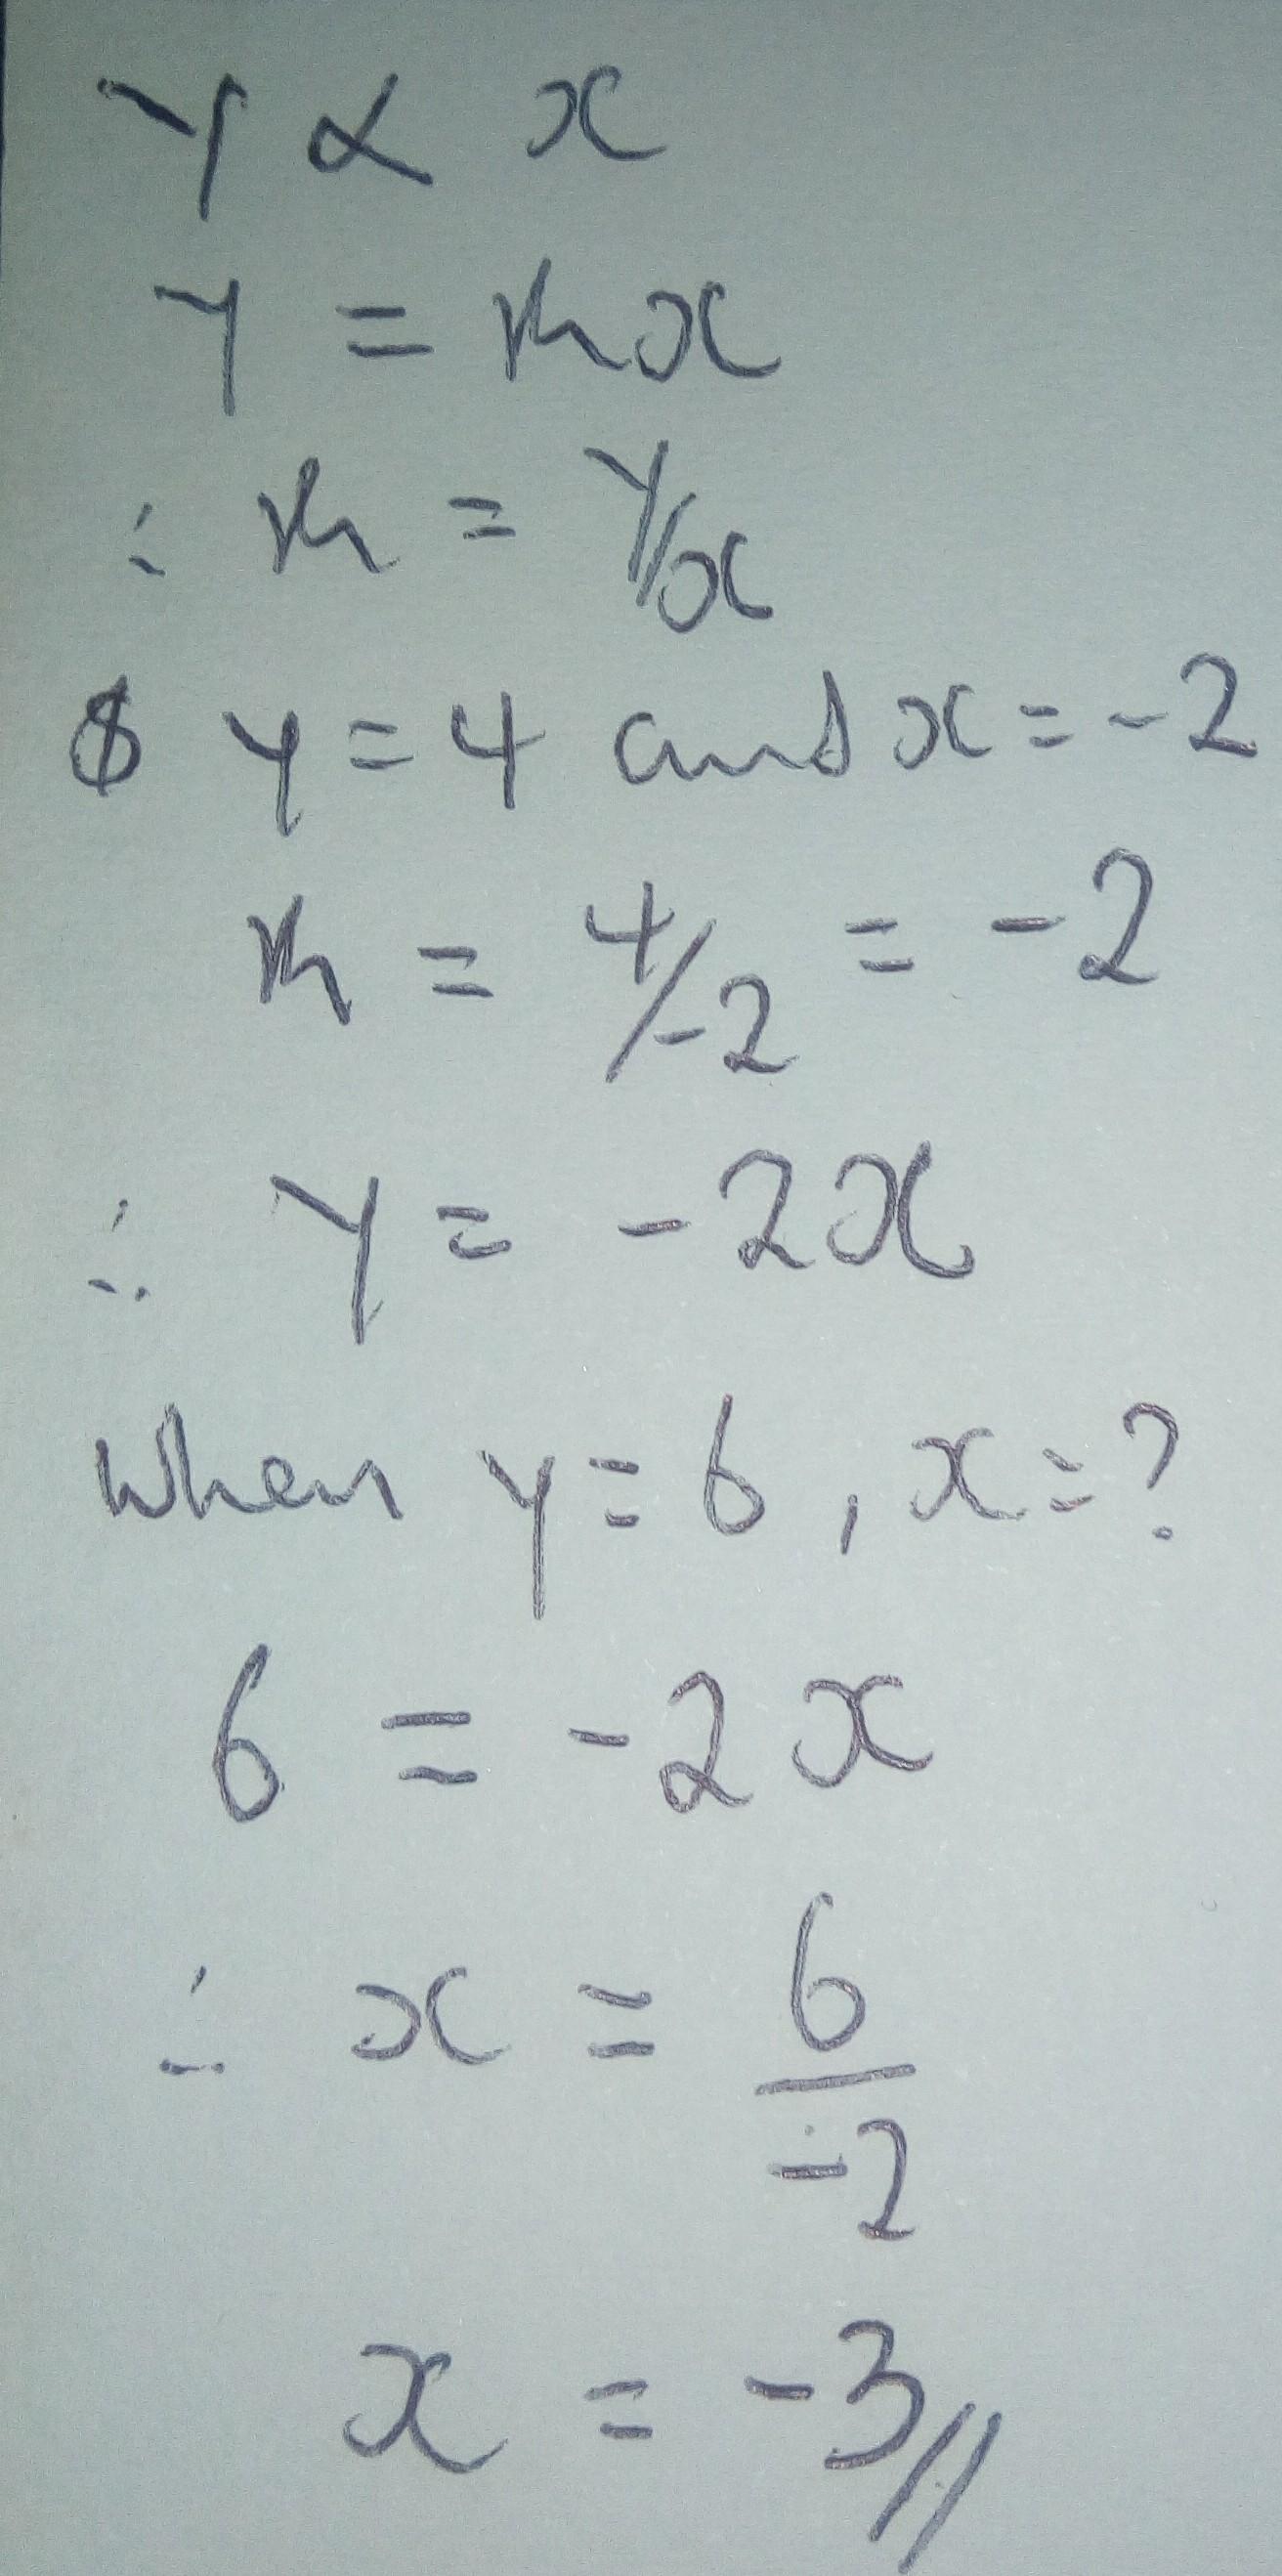 y ∝ x
y = kx
∴ k = y/x
y = 4 and x = -2
k = 4/-2 = -2
∴ y = -2x
when y = 6, x = ?
6 = -2x
∴ x = 6/-2
x = -3//